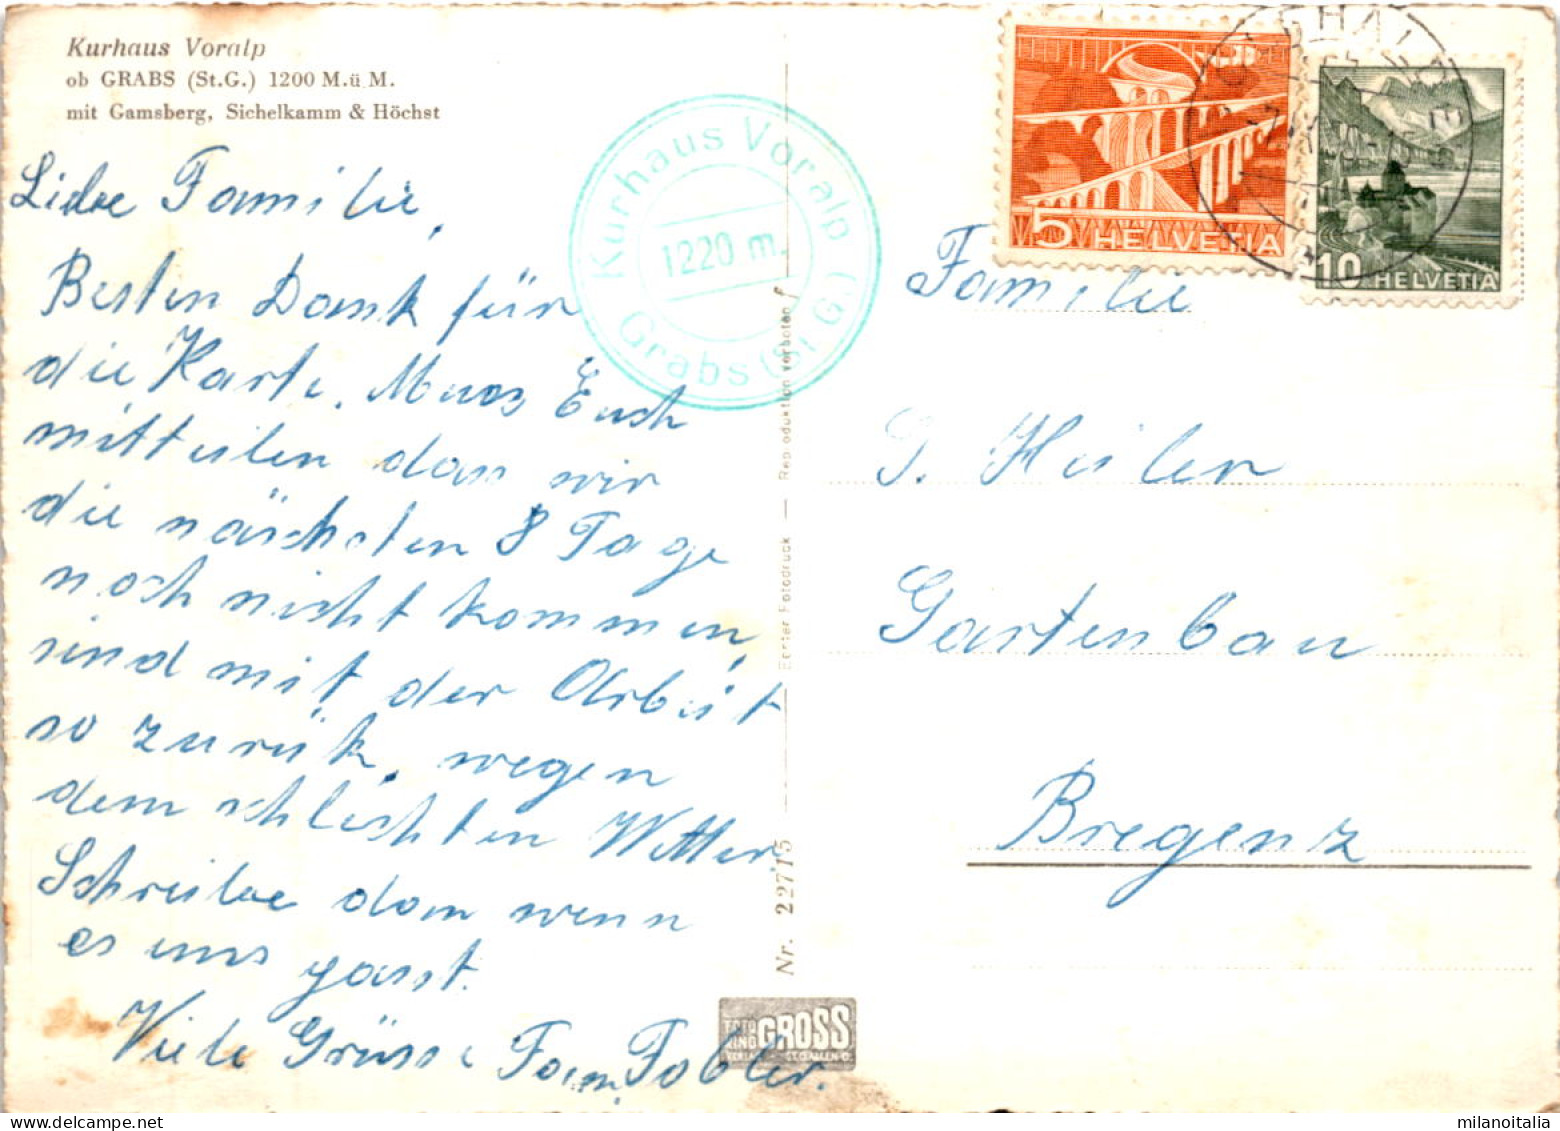 Kurhaus Voralp
ob GRABS (St.G.) 1200 M.ü M.
mit Gamsberg, Sichelkamm & Höchst
Liebe Familie,
Besten Dank für
die Karte. Muss Euch
mitteilen dass wir
die nächsten 8 Tage
noch nicht kommen,
sind mit der Arbeit
so zurük, wegen
dem schlechten Wetter.
Schreibe dann wenn
es uns passt.
Viele Grüsse Fam. Tobler.
Kurhaus Voralp
1220 m.
Grabs (St. G.)
Reproduktion verboten
Echter Fotodruck
Nr. 22715
FOTO
GROSS
VERLAG ST.GALLEN
5 HELVETIA
10 HELVETIA
Familie
J. Heiler
Gartenbau
Bregenz
milanoitalia